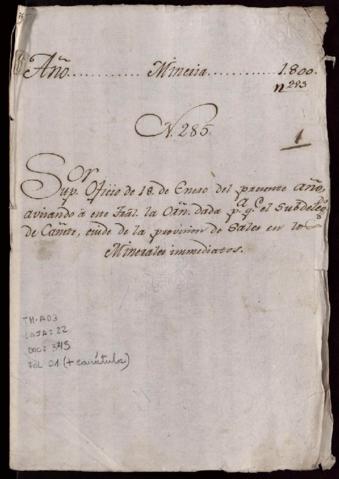 Año........... Mineria........... 1800.
n 293
N. 285.
1
Sor
Sup. Oficio de 18. de Enero del presente año,
avisando à este Tral. la Orn. dada pa. qe. el Subdeldo.
de Canta, cuide de la provision de Sales en los
Minerales immediatos.
TM-AD3
CAJA: 22
DOC: 345
FOL 01 (+ carátula)